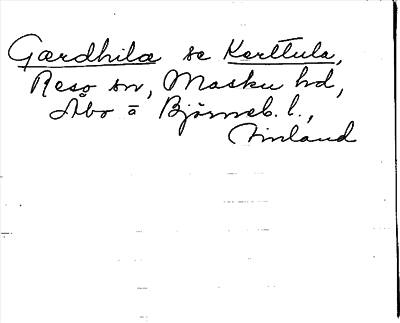 Gærdhilæ se Kerttula,
Reso sn, Masku hd,
Åbo ā Björneb. l.,
Finland